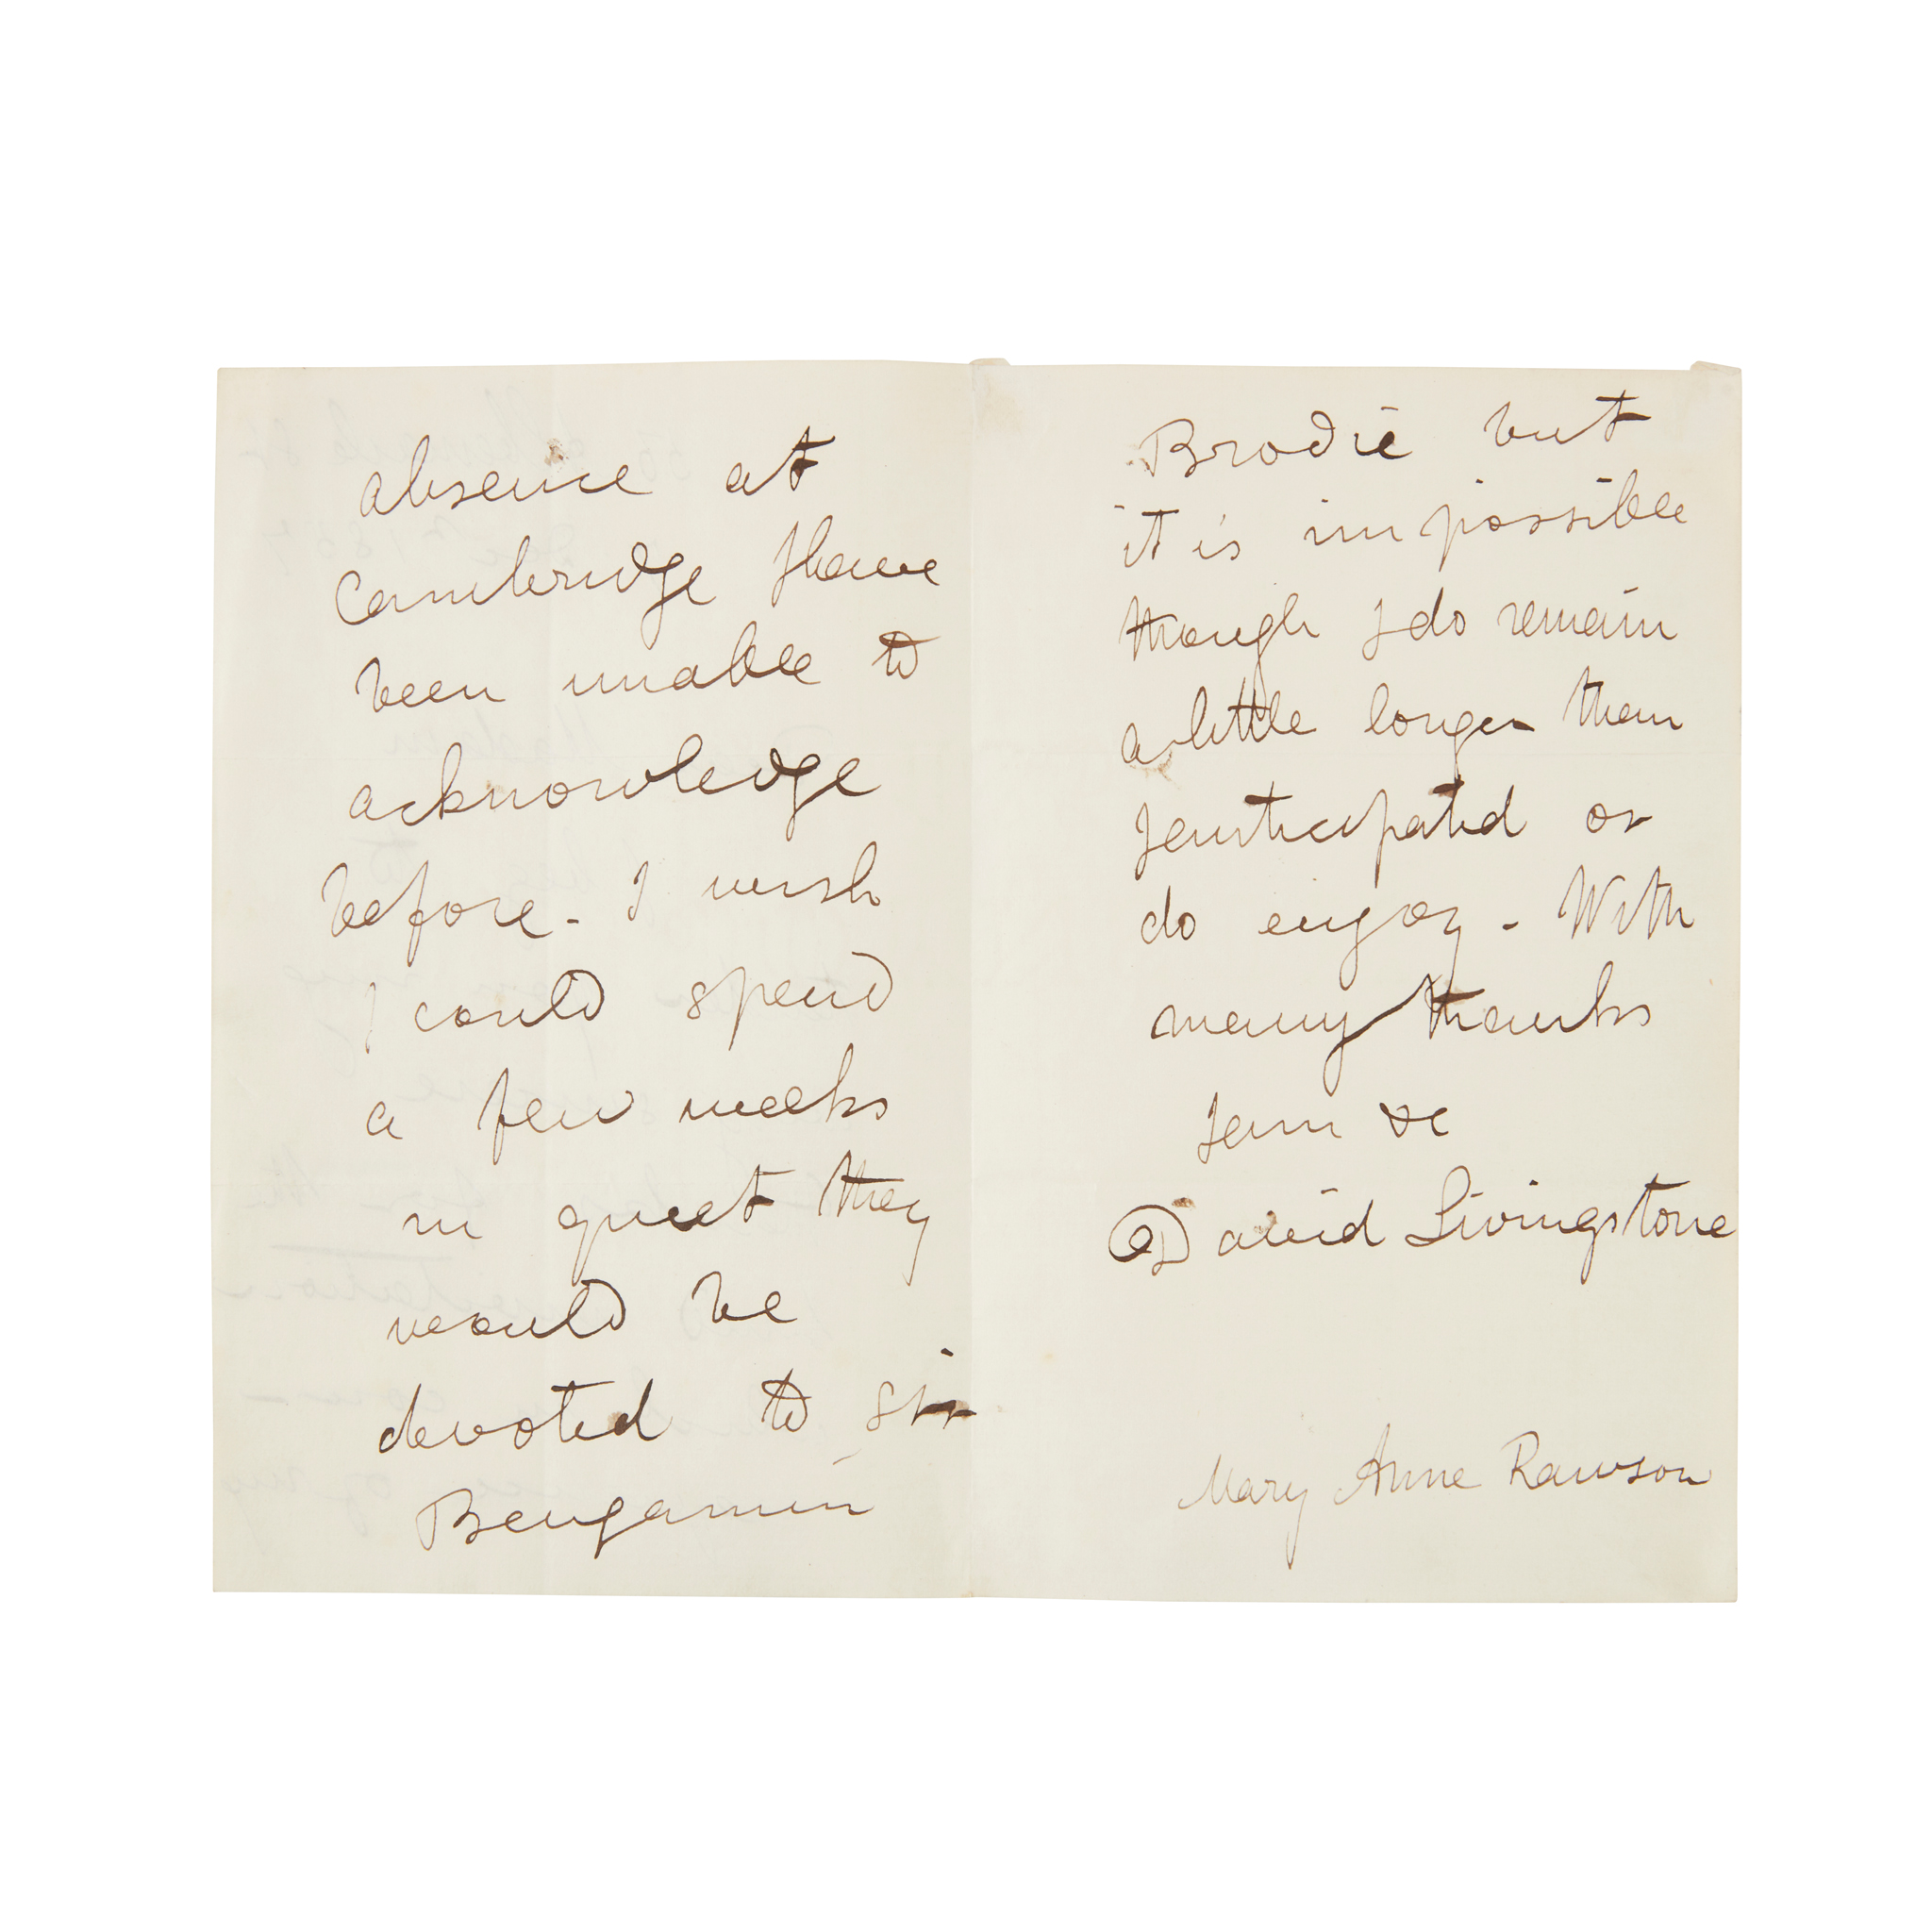 absence at
Cambridge I have
been unable to
acknowledge
before - I wish
I could spend
a few weeks
in quiet they
would be
devoted to Sir
Benjamin
Brodie but
it is impossible
though I do remain
a little longer than
I anticipated or
do enjoy - With
many thanks
I am &c
David Livingstone
Mary Anne Rawson